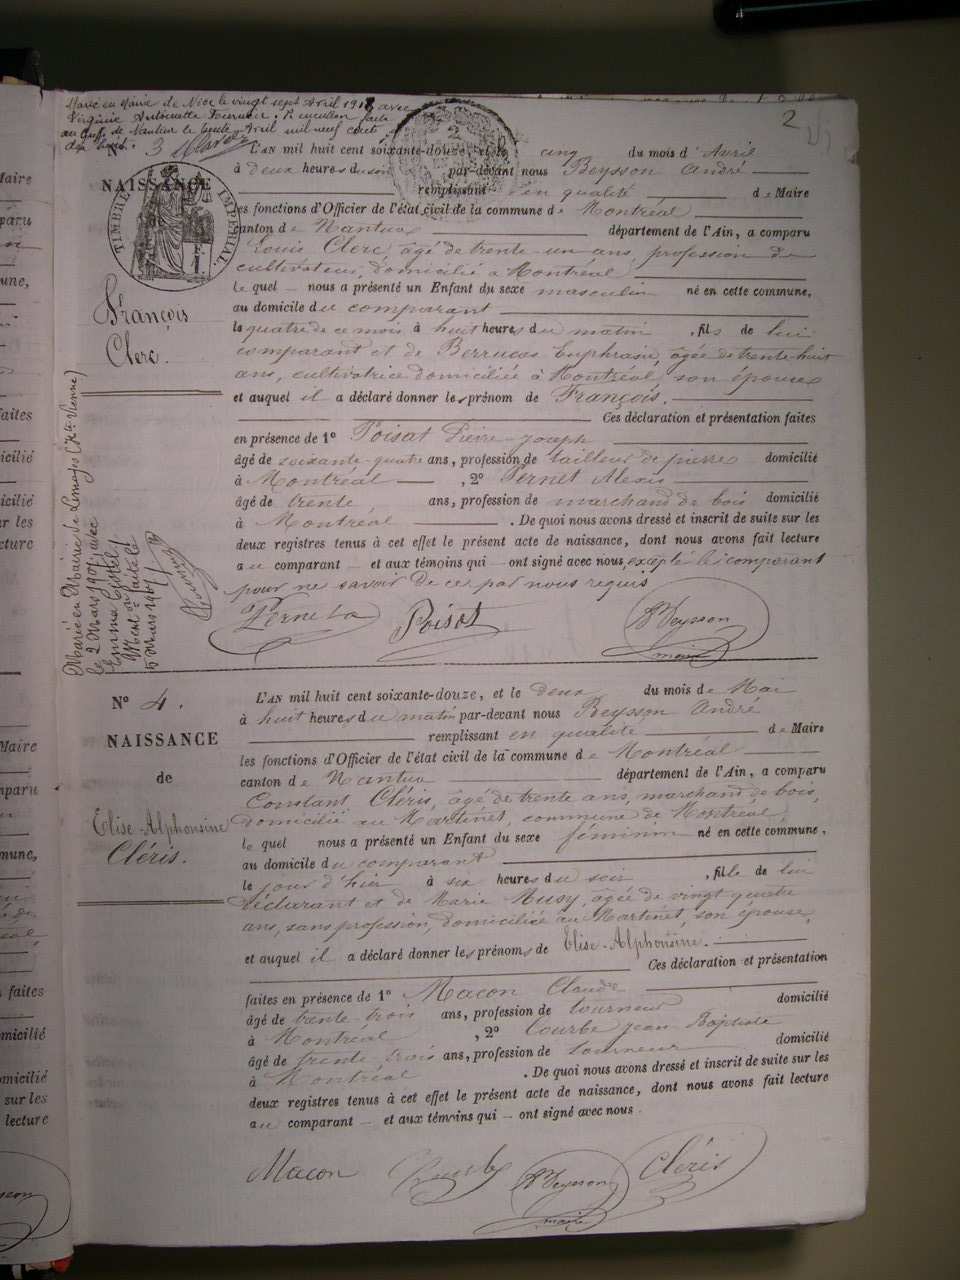 Marié en Mairie de Nice le vingt sept Avril 1918 avec
Virginie Antoinette Fournier.
au Greffe de Nantua le trente Avril mil neuf cent
dix huit.
2
N° 3
NAISSANCE
TIMBRE IMPÉRIAL.
François
Clerc.
L'AN mil huit cent soixante-douze, et le cinq du mois d'Avril
à deux heures du soir par-devant nous Beysson André
remplissant en qualité de Maire
les fonctions d'Officier de l'état civil de la commune de Montréal
canton de Nantua département de l'Ain, a comparu
Louis Clerc, âgé de trente-un ans, profession de
cultivateur, domicilié à Montréal
le quel nous a présenté un Enfant du sexe masculin né en cette commune,
au domicile du comparant
le quatre de ce mois à huit heures du matin, fils de lui
comparant et de Berrucas Euphrasie, âgée de trente-huit
ans, cultivatrice domiciliée à Montréal, son épouse
et auquel il a déclaré donner le prénom de François.
Ces déclaration et présentation faites
en présence de 1° Poisat Pierre-joseph
âgé de soixante-quatre ans, profession de tailleur de pierre domicilié
à Montréal, 2° Pernet Alexis
âgé de trente ans, profession de marchand de bois domicilié
à Montréal. De quoi nous avons dressé et inscrit de suite sur les
deux registres tenus à cet effet le présent acte de naissance, dont nous avons fait lecture
au comparant — et aux témoins qui — ont signé avec nous, excepté le comparant
pour ne savoir de ce par nous requis
Poisat
A Beysson
maire
Marié en Mairie de Limoges (Hte Vienne)
le 2 Mars 1907 avec
Emma
Mention faite le
5 Mars 1907
N° 4.
NAISSANCE
de
Elise-Alphonsine
Cléris.
L'AN mil huit cent soixante-douze, et le deux du mois de Mai
à huit heures du matin par-devant nous Beysson André
remplissant en qualité de Maire
les fonctions d'Officier de l'état civil de la commune de Montréal
canton de Nantua département de l'Ain, a comparu
Constant Cléris, âgé de trente ans, marchand de bois,
domicilié au Martinet, commune de Montréal,
le quel nous a présenté un Enfant du sexe féminin né en cette commune,
au domicile du comparant
le jour d'hier à six heures du soir, fille de lui
déclarant et de Marie Musy, âgée de vingt quatre
ans, sans profession, domiciliée au Martinet, son épouse,
et auquel il a déclaré donner les prénoms de Elise-Alphonsine.
Ces déclaration et présentation
faites en présence de 1° Macon Claude
âgé de trente trois ans, profession de tourneur domicilié
à Montréal, 2° Courbe jean Baptiste
âgé de trente trois ans, profession de tourneur domicilié
à Montréal. De quoi nous avons dressé et inscrit de suite sur les
deux registres tenus à cet effet le présent acte de naissance, dont nous avons fait lecture
au comparant — et aux témoins qui — ont signé avec nous.
Macon
A Beysson
maire
Cléris